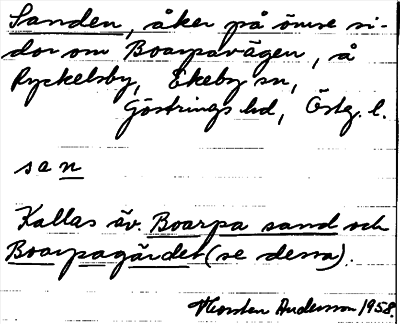 Sanden, åker på ömse si-
dor om Boarpavägen, å
Ryckelsby, Ekeby sn,
Göstrings hd, Östg. l.
san
Kallas äv. Boarpa sand och
Boarpagärdet (se dessa).
Thorsten Andersson 1958.